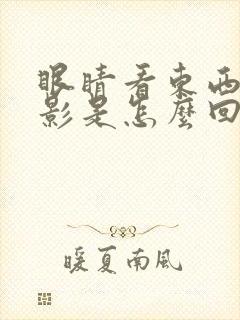 眼睛看東西
影是怎麼回
暖夏南風